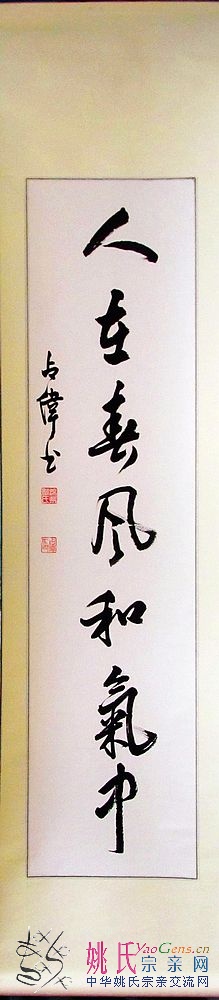 人在春风和氣中
占偉书
姚氏宗亲网
YaoGens.cn
中华姚氏宗亲交流网